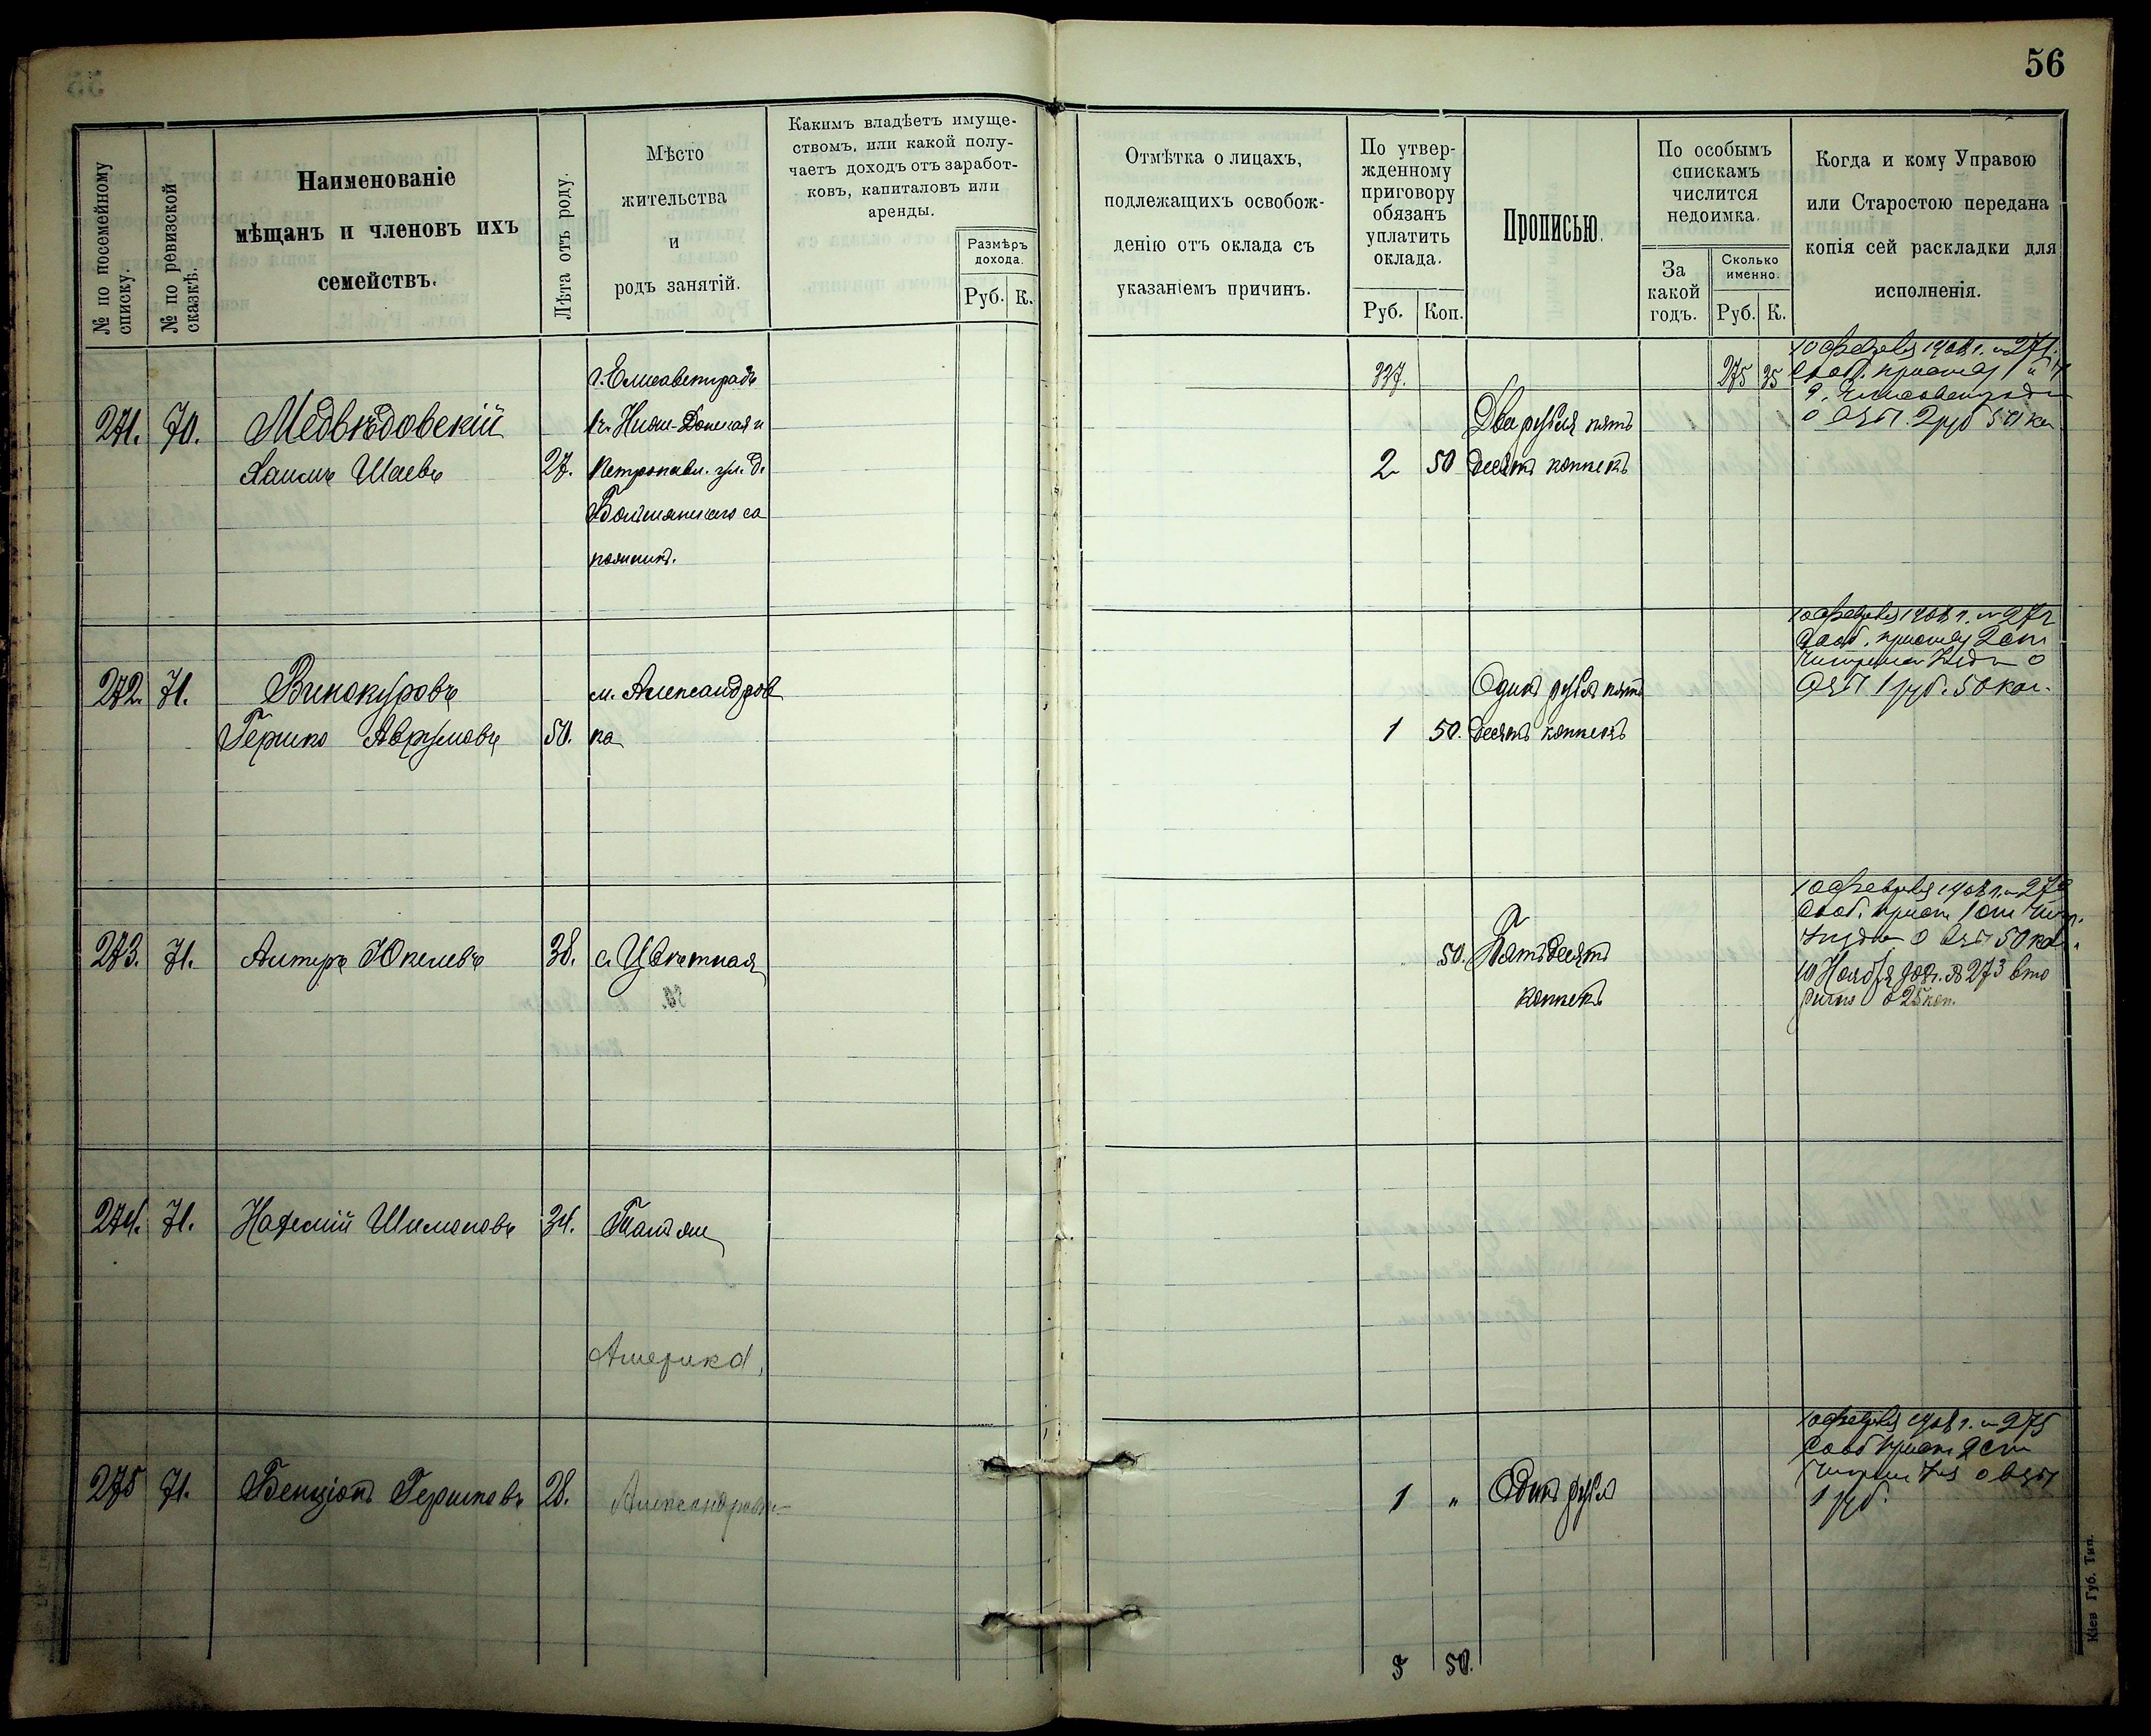 56
№ по посемейному
списку.
№ по ревизской
сказкѣ.
Наименованіе
мѣщанъ и членовъ ихъ
семействъ.
Лѣта отъ роду.
Мѣсто
жительства
и
родъ занятій.
Какимъ владѣетъ имуще-
ствомъ, или какой полу-
чаетъ доходъ отъ заработ-
ковъ, капиталовъ или
аренды.
Размѣръ
дохода.
Руб. К.
Отмѣтка о лицахъ,
подлежащихъ освобож-
денію отъ оклада съ
указаніемъ причинъ.
По утвер-
жденному
приговору
обязанъ
уплатить
оклада.
Руб. Коп.
Прописью.
По особымъ
спискамъ
числится
недоимка.
За
какой
годъ.
Сколько
именно.
Руб. К.
Когда и кому Управою
или Старостою передана
копія сей раскладки для
исполненія.
271. 70. Медвѣдовскій
Хаимъ Шаевъ 27.
г. Елисаветградъ
Петропавл. ул. д.
337.
275 35
Два рубля пять
2 50 десятъ копѣекъ
10 февраля 1908 г. № 271
г. Елисаветграда
о взы. 2 руб 50 коп
272. 71. Винокуровъ
Гершко Аврумовъ 50.
м. Александров
ка
Одинъ рубль пять
1 50. десятъ копѣекъ
10 февраля 1908 г. № 272
Сооб. приставу 2 ст
о
взы 1 руб. 50 коп.
273. 71. Алтеръ Юкелевъ 38. с. Цвѣтная
50. Пятьдесятъ
копѣекъ
10 февраля 1908 г. № 273
Сооб. прист 1 ст Чиг.
о взы 50 коп.
10 Ноября 908 г. № 273 вто
рично о 25 коп.
274. 71. Шимоновъ 34. Тамъ же
Америка
275 71. Бенціонъ Гершковъ 28. Александровка
1 „ Одинъ рубль
10 февраля 1908 г. № 275
Сооб прист 2 ст
о взы
1 руб.
5 50.
Кіев Губ. Тип.